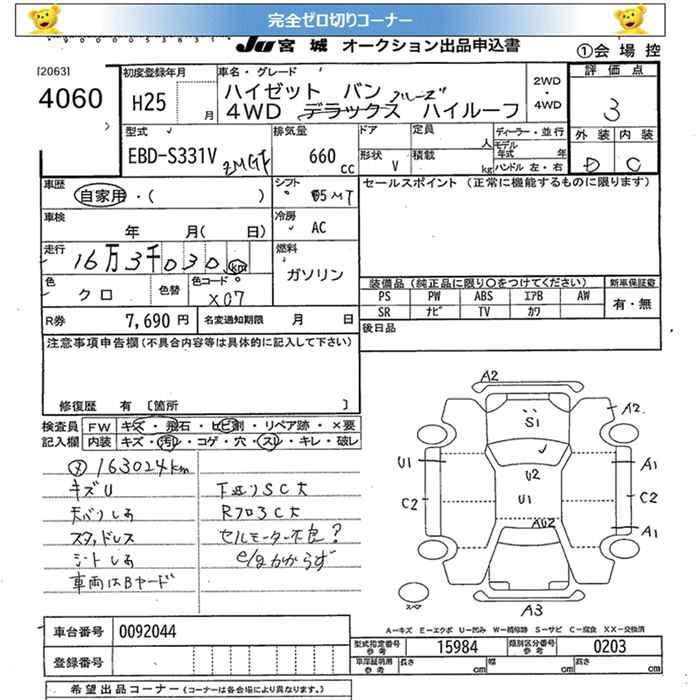 完全ゼロ切りコーナー
JU 宮城 オークション出品申込書
①会場控
[2063]
4060
初度登録年月
H25 月
車名・グレード
ハイゼット バン クルーズ
4WD デラックス ハイルーフ
2WD
・
4WD
評価点
3
外装 内装
D C
型式
EBD-S331V
ZMGF
排気量
660 cc
ドア
定員 人
形状 V
積載 kg
ディーラー・並行
モデル年式 年
ハンドル 左・右
車歴
自家用・( )
シフト
F5MT
セールスポイント (正常に機能するものに限ります)
車検
年 月( 日)
冷房
AC
走行
16万3千030km
燃料
ガソリン
色
クロ
色替
色コード
X07
装備品 (純正品に限り○をつけてください)
新車保証書
PS PW ABS エアB AW
SR ナビ TV カワ
有・無
R券 7,690円
名変通知期限 月 日
後日品
注意事項申告欄 (不具合内容等は具体的に記入して下さい)
修復歴 有 [箇所 ]
検査員記入欄
FW キズ・飛石・ヒビ割・リペア跡・×要
内装 キズ・汚れ・コゲ・穴・スレ・キレ・破レ
163024km
キズU
天バリしみ
スタッドレス
シートしみ
車両はBヤード
下廻りSC大
Rフロ3C大
セルモーター不良?
e/gかからず
A2
A2
S1
U1
U2
U1
A1
C2
C2
AU2
A1
A3
スペア
A-キズ E-エクボ U-凹み W-補修跡 S-サビ C-腐食 XX-交換済
車台番号 0092044
登録番号
型式指定番号 参考 15984
類別区分番号 参考 0203
車庫証明用 参考 長さ cm 幅 cm 高さ cm
希望出品コーナー (コーナーは各会場により異なります。)